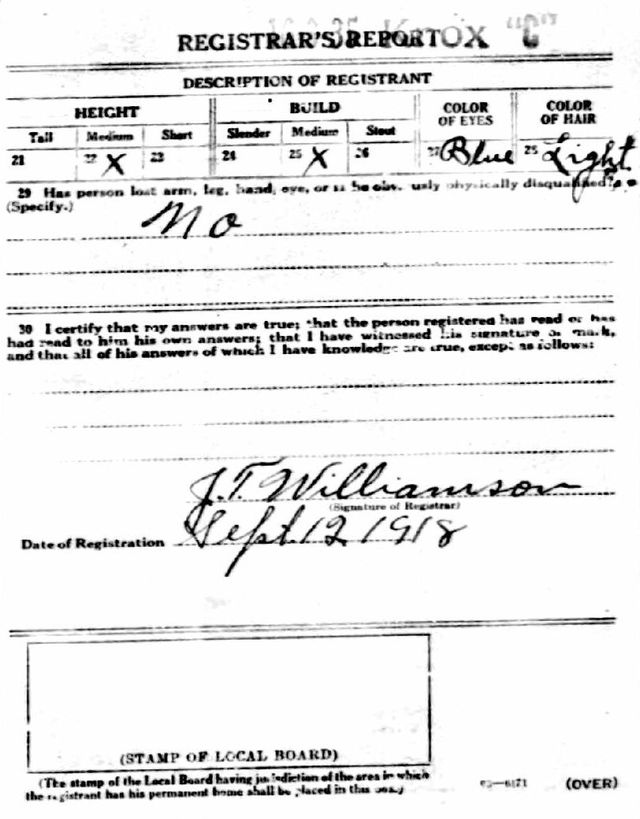 REGISTRAR'S REPORT KNOX "C"
DESCRIPTION OF REGISTRANT
HEIGHT BUILD COLOR OF EYES COLOR OF HAIR
Tall Medium Short Slender Medium Stout
21 22 X 23 24 25 X 26 27 Blue 28 Light
29 Has person lost arm, leg, hand, eye, or is he obviously physically disqualified?
(Specify.)
No
30 I certify that my answers are true; that the person registered has read or has
had read to him his own answers; that I have witnessed his signature or mark,
and that all of his answers of which I have knowledge are true, except as follows:
J.T. Williamson
(Signature of Registrar)
Date of Registration Sept 12 1918
(STAMP OF LOCAL BOARD)
(The stamp of the Local Board having jurisdiction of the area in which
the registrant has his permanent home shall be placed in this box.)
(OVER)